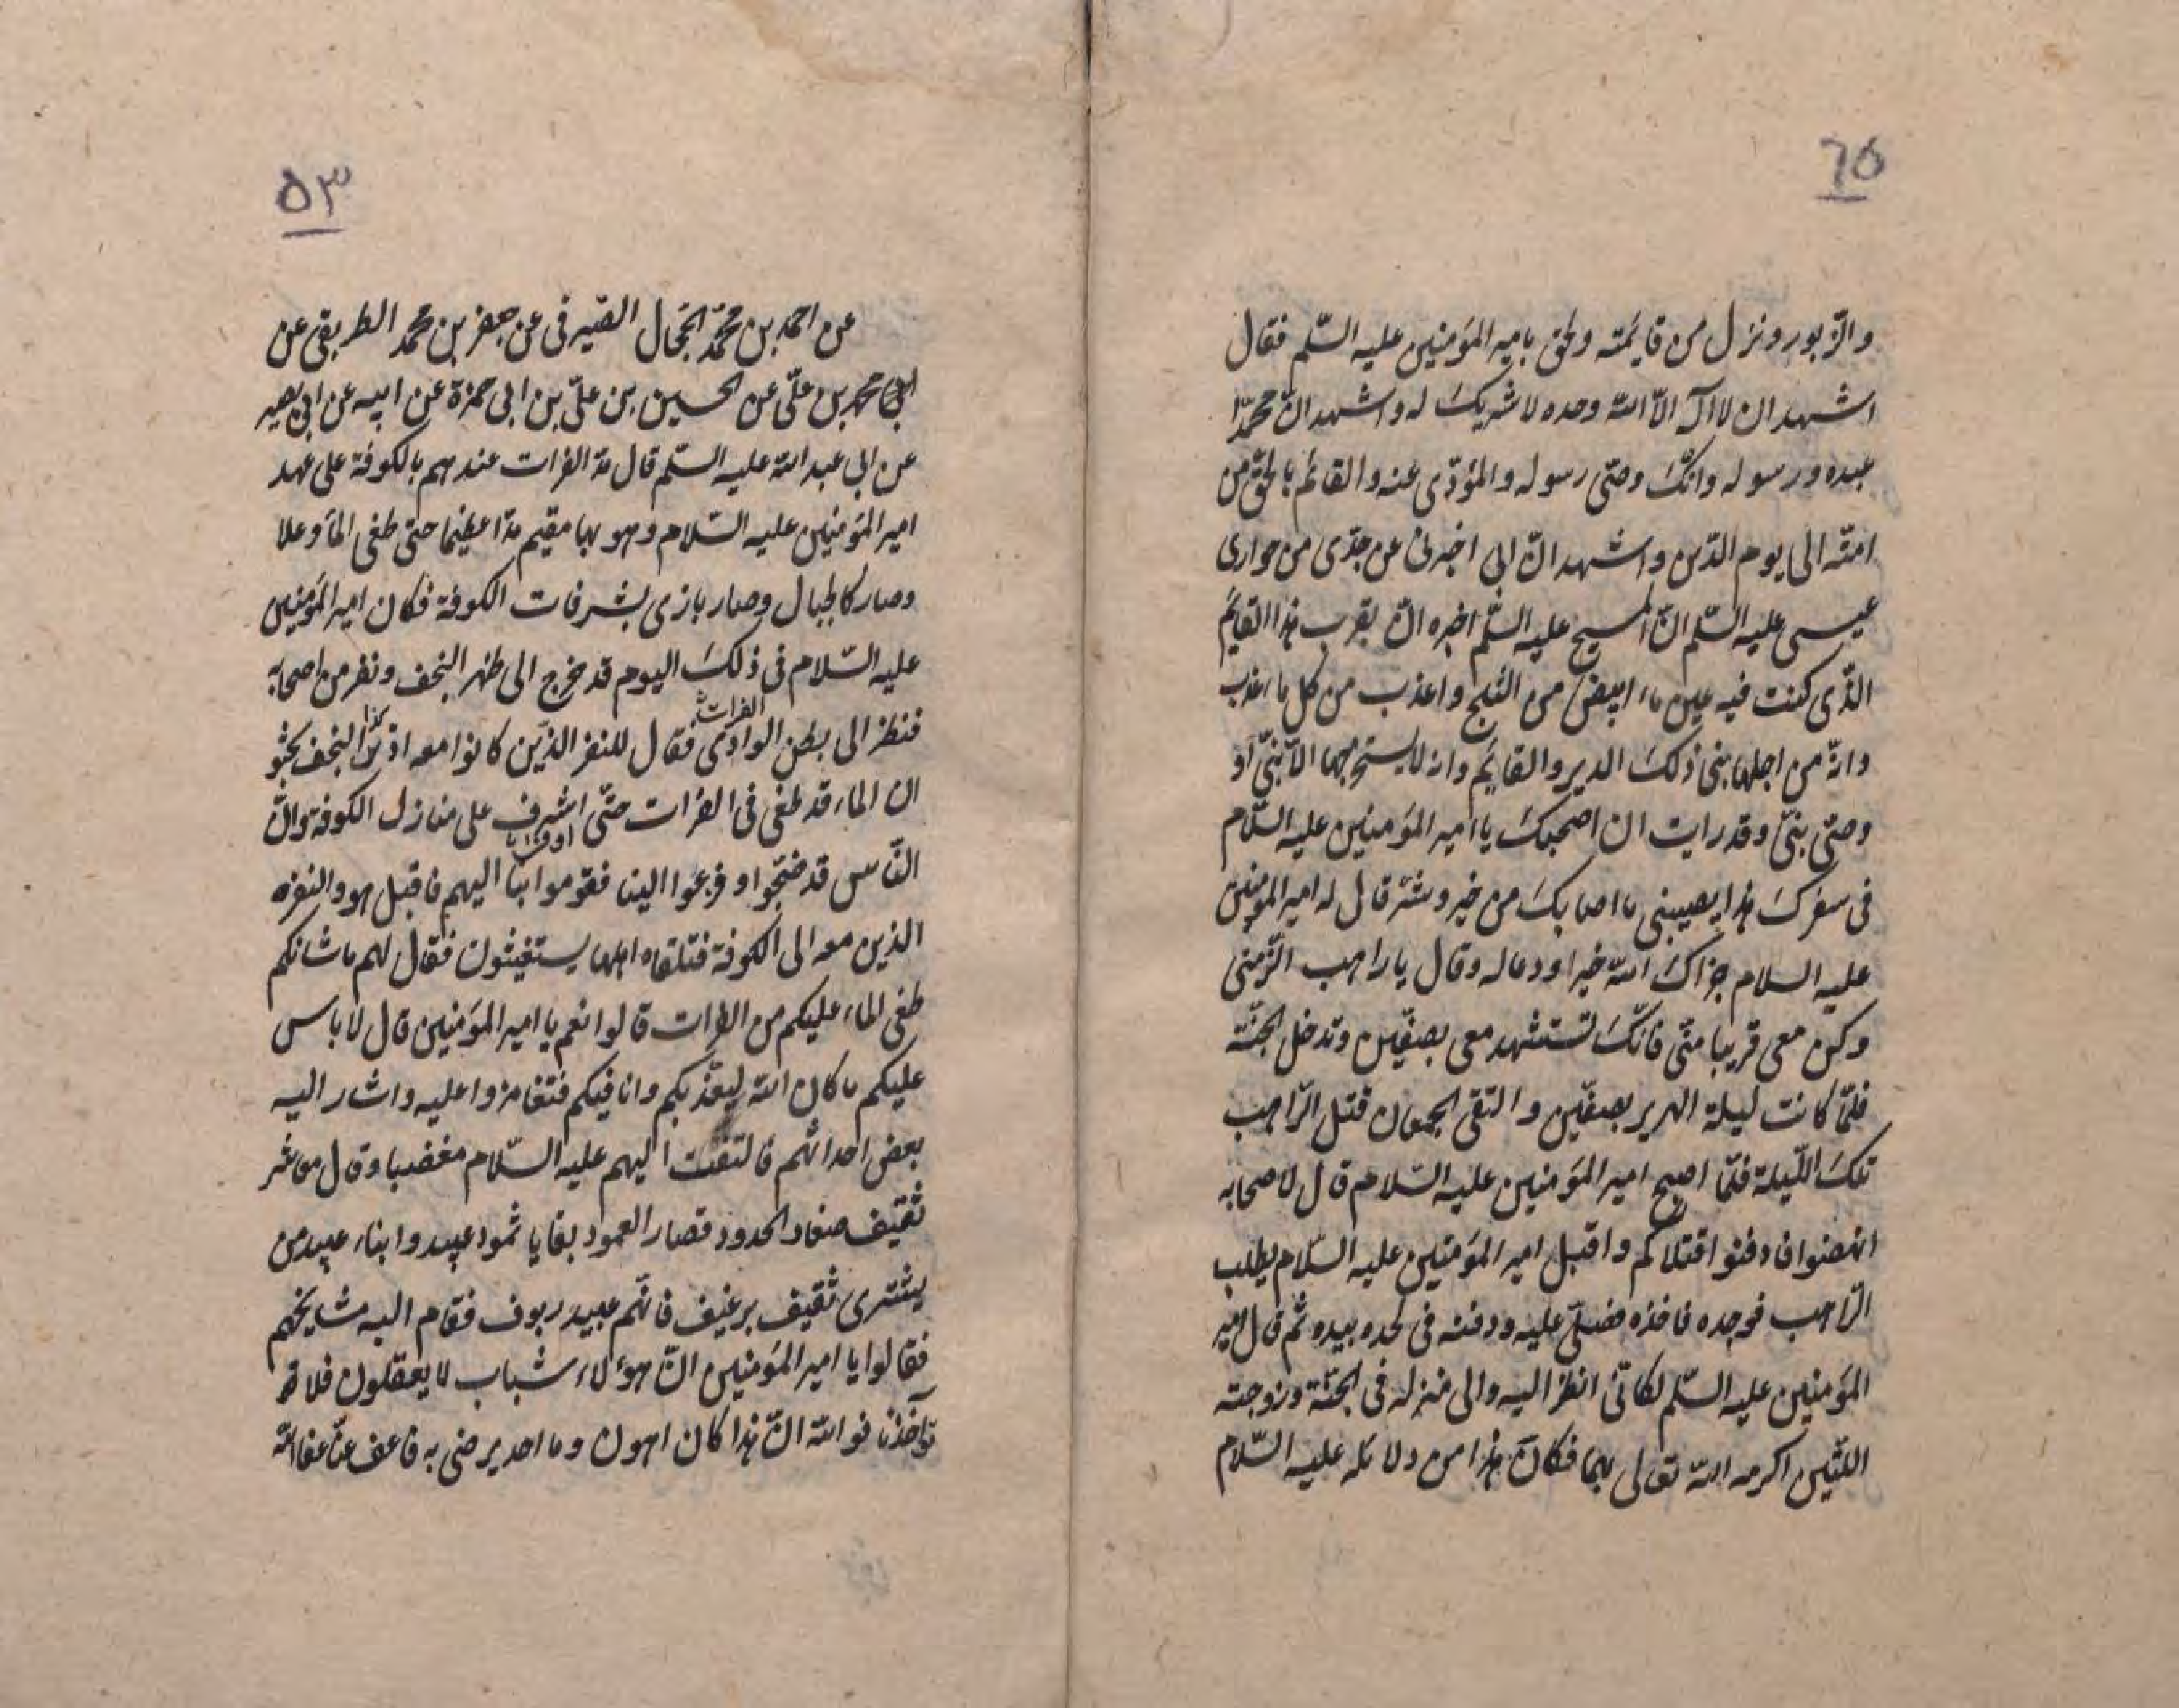 ٦٥
والزبور ونزل من قايمته ولحق بامير المؤمنين عليه السّلم فقال
اشهد ان لا اله الّا اللّه وحده لا شريك له واشهد انّ محمّدا
عبده ورسوله وانّك وصىّ رسوله والمؤدّى عنه والقائم بالحقّ من
امته الى يوم الدّين واشهد انّ ابى اخبرنى عن جدّى من حوارى
عيسى عليه السّلم انّ المسيح عليه السّلم اخبره انّ بقرب هذا القايم
الذّى كنت فيه عين ماء ابيض من الثلج واعذب من كل ماء عذب
وانّه من اجلها بنى ذلك الدير والقايم وانه لا يستخرجها الّا نبىّ او
وصىّ نبىّ وقد رايت ان اصحبك يا امير المؤمنين عليه السّلام
فى سفرك هذا يصيبنى ما اصابك من خير وشرّ قال له امير المؤمنين
عليه السلام جزاك اللّه خيرا ودعا له وقال يا راهب الزمنى
وكن معى قريبا منّى فانّك تستشهد معى بصفّين وتدخل الجنّة
فلمّا كانت ليلة الهرير بصفّين والتقى الجمعان قتل الرّاهب
تلك اللّيلة فلمّا اصبح امير المؤمنين عليه السّلام قال لاصحابه
انهضوا فادفنوا قتلاكم واقبل امير المؤمنين عليه السّلام يطلب
الرّاهب فوجده فاخذه فصلّى عليه ودفنه فى لحده بيده ثم قال امير
المؤمنين عليه السّلم لكانّى انظر اليه والى منزله فى الجنّة وزوجته
اللتين اكرمه اللّه تعالى بهما فكان هذا من دلائله عليه السّلام
٥٣
عن احمد بن محمّد الجمال الصيرفى عن جعفر بن محمد عن
ابى محمد بن علّى عن الحسين بن علّى بن ابى حمزة عن ابيه عن ابى بصير
عن ابى عبد اللّه عليه السّلم قال مدّ الفرات عندهم بالكوفة على عهد
امير المؤمنين عليه السّلام وهو بها مقيم مدّا عظيما حتى طغى الماء وعلا
وصار كالجبال وصار بازى بشرفات الكوفة فكان امير المؤمنين
عليه السّلام فى ذلك اليوم قد خرج الى ظهر النجف ونفر من اصحابه
فنظر الى بطن الوادى الفرات فقال للنفر الذّين كانوا معه النجف
ان الماء قد طغى فى الفرات حتّى اشرف على منازل الكوفة وانّ
النّاس قد ضجّوا وفزعوا الينا فقوموا بنا اليهم فاقبل هو والنفر
الذين معه الى الكوفة فتلقاه اهلها يستغيثون فقال لهم ما شانكم
طغى الماء عليكم من الفرات قالوا نعم يا امير المؤمنين قال لا باس
عليكم ما كان اللّه ليعذّبكم وانا فيكم فتغامزوا عليه واشار اليه
بعض احداثهم فالتفت اليهم عليه السّلام مغضبا وقال معاشر
ثقيف صغار الخدود قصار العمود بقايا ثمود عبيد وابناء عبيد من
يشترى ثقيف برغيف فانّهم عبيد ربوف فقام اليه مشايخهم
فقالوا يا امير المؤمنين انّ هؤلاء شباب لا يعقلون فلا
تؤاخذنا فو اللّه انّ هذا كان اهون وما احد يرضى به فاعف عنّا عفا اللّه